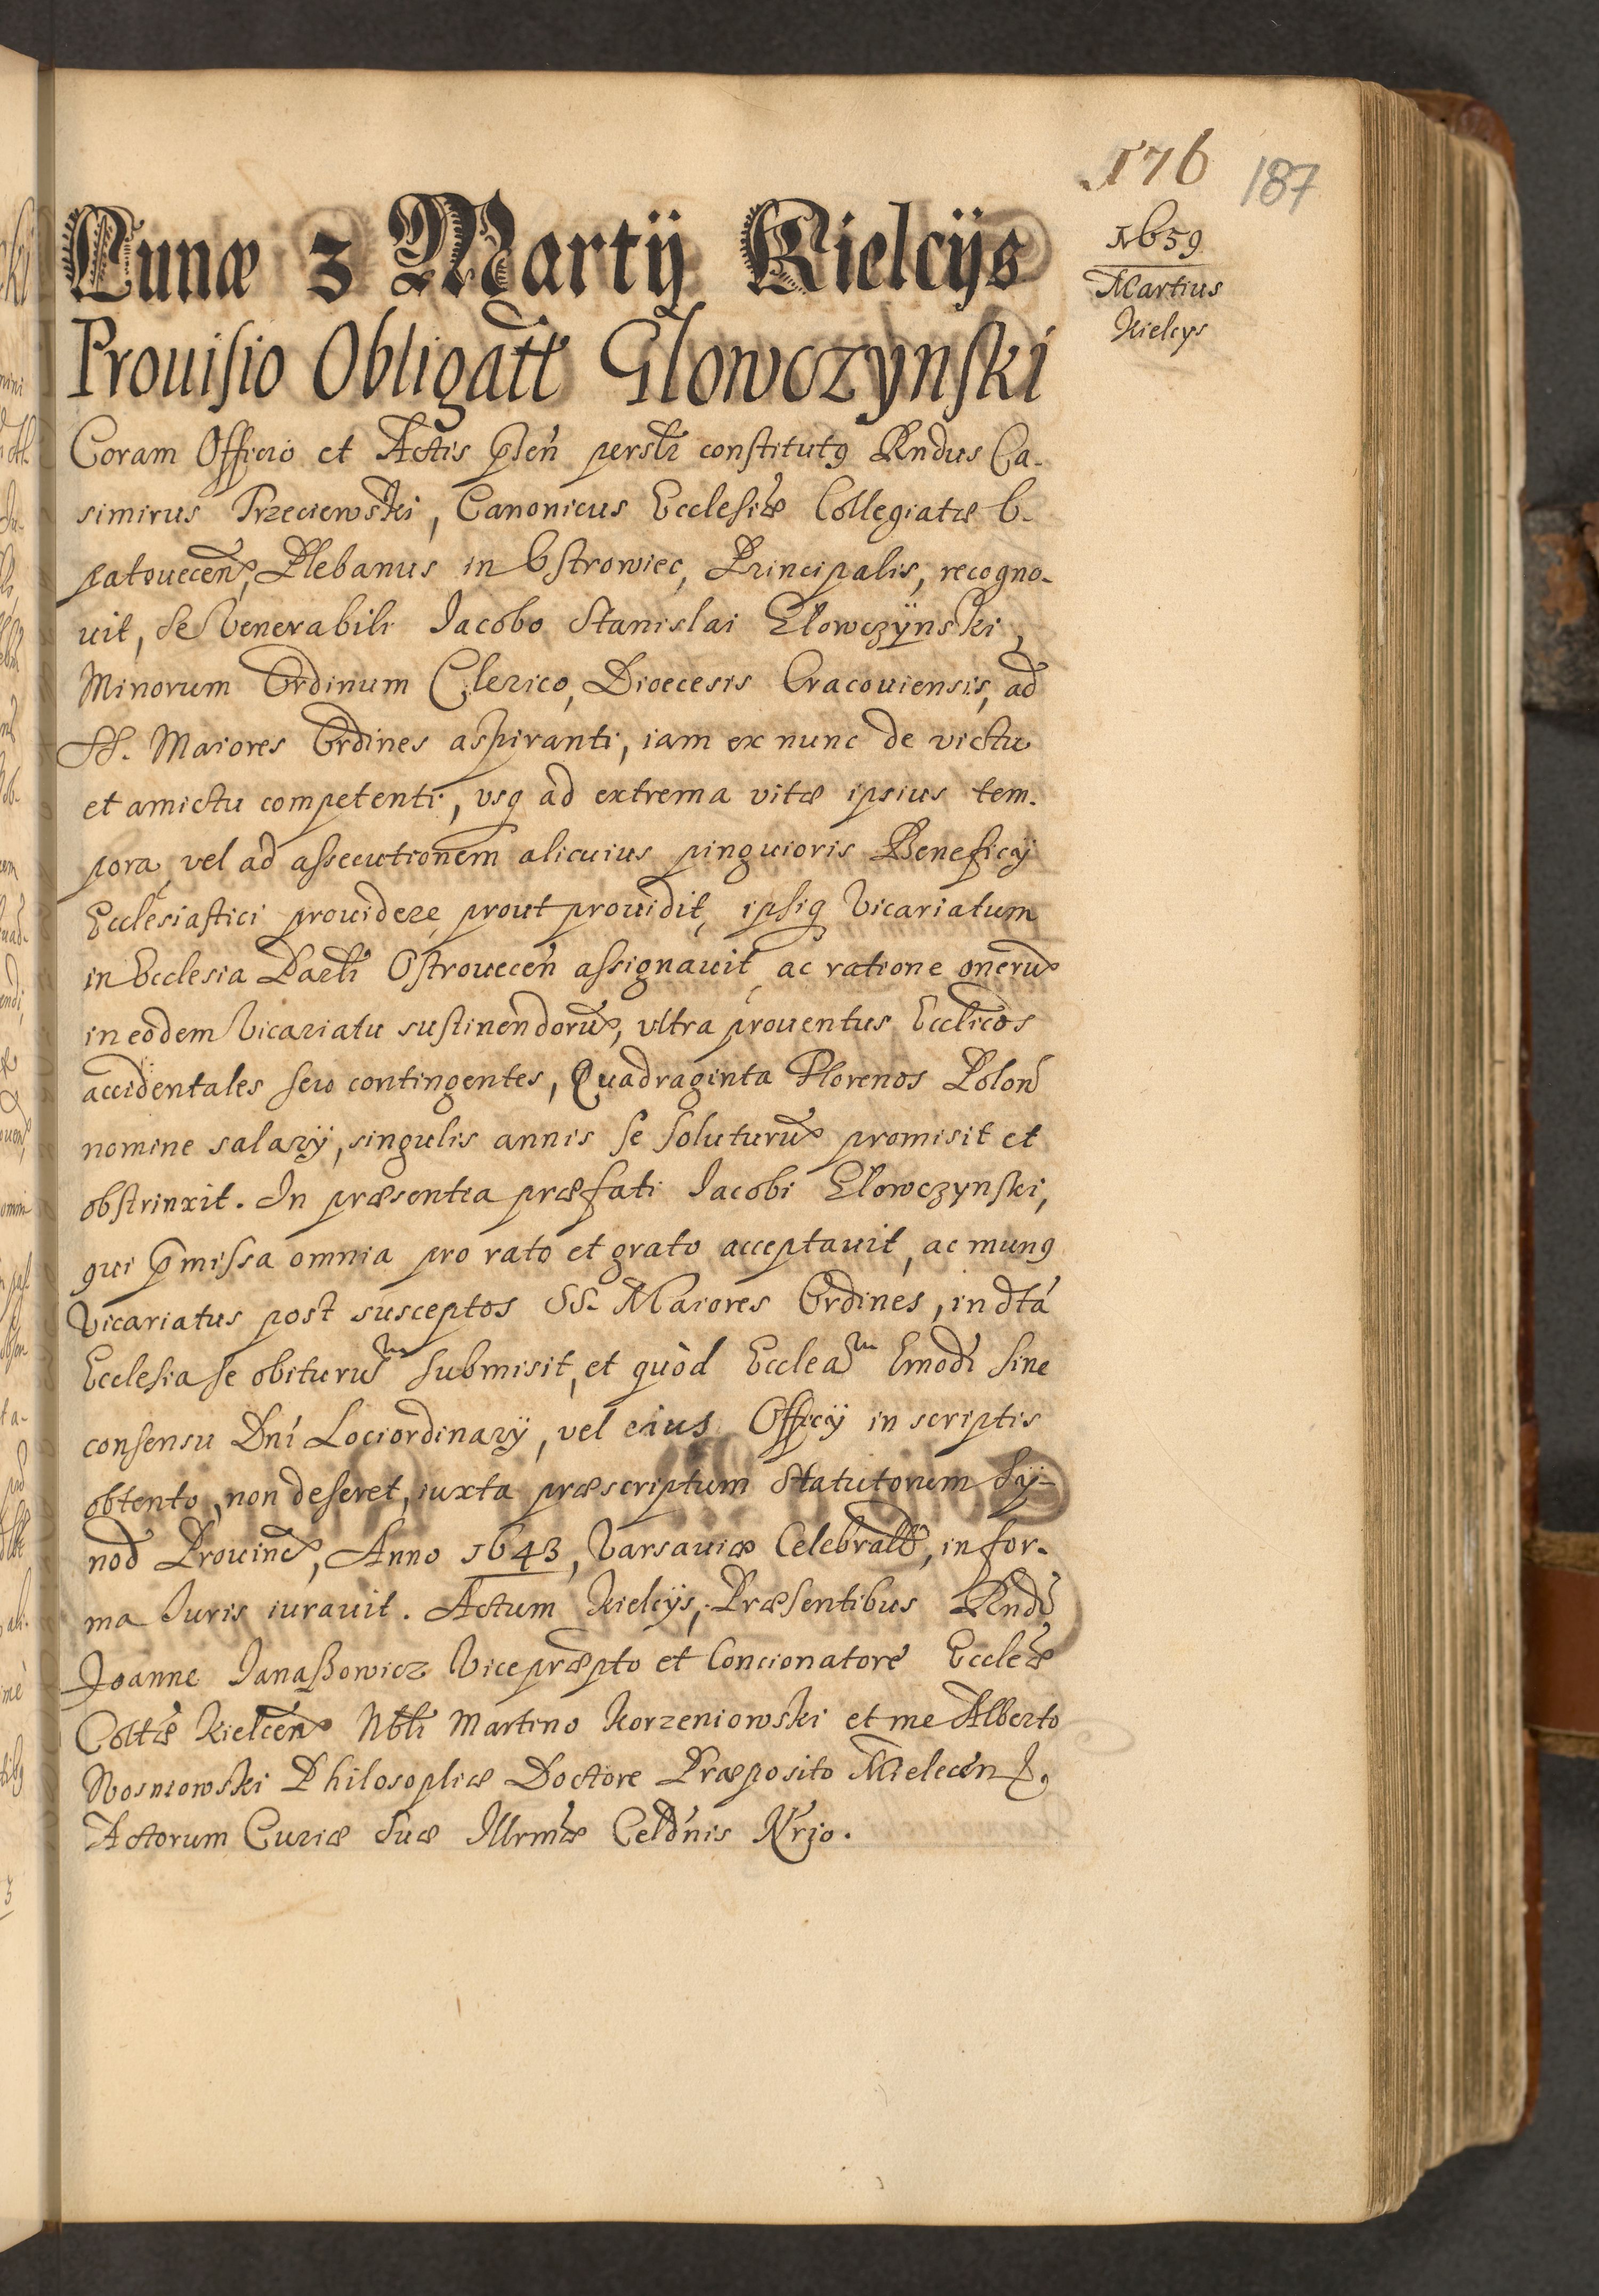 176 187
1659
Martius
Kielcys
Lunæ 3 Martij Kielcijs
Prouisio Obligatt Glowczynski
Coram Officio et Actis pñsen persłr constitutꝰ Rndus Ca-
simirus Trzeciewski, Canonicus Ecclesiæ Collegiatæ O-
patouecen, Plebanus in Ostrowiec, Principalis, recogno-
uit, se Venerabili Iacobo Stanislai Glowczÿnski,
Minorum Ordinum Clerico, Dioecesis Cracouiensis, ad
SS. Maiores Ordines aspiranti, iam ex nunc de victu
et amictu competenti, vsq ad extrema vitæ ipsius tem-
pora, vel ad assecutionem alicuius pinguioris Beneficij
Ecclesiastici prouidere, prout prouidit, ipsiq Vicariatum
in Ecclesia Paełi Ostrouecen assignauit, ac ratione onerũ
in eodem Vicariatu sustinendorũ, vltra prouentus Ecclicos
accidentales seu contingentes, Quadraginta Florenos Polon
nomine salarij, singulis annis se soluturũ promisit et
obstrinxit. In præsentia præfati Iacobi Glowczynski,
qui p̃missa omnia pro rato et grato acceptauit, ac munꝰ
Vicariatus post susceptos SS. Maiores Ordines, in dtá
Ecclesia se obiturũm submisit, et quòd Eccleãm Emodi sine
consensu Dni Lociordinarij, vel eius Officij in scriptis
obtento, non deseret, iuxta præscriptum Statutorum Sÿ-
nod Prouinc, Anno 1643, Varsauiæ Celebrat, in for-
ma Iuris iurauit. Actum Kielcijs, Præsentibus Rndo
Joanne Ianaßowicz Vicepræpto et Concionatore Eccleæ
Coltæ Kielcen Nbłi Martino Korzeniowski et me Alberto
Wosniowski Philosophiæ Doctore Præposito Mielecen
Actorum Curiæ Suæ Illrmæ Celdnis Nrio.